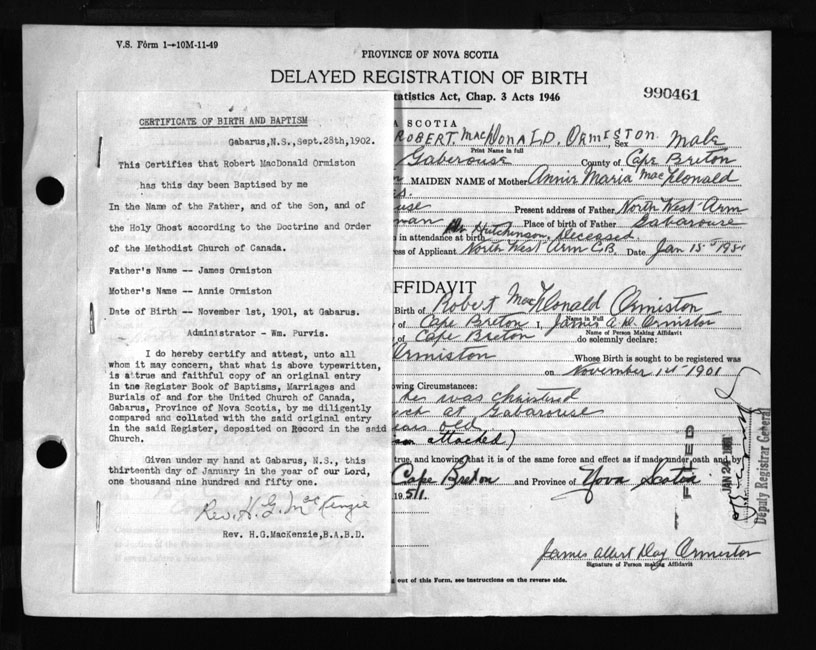 V.S. Form 1-10M-11-49
PROVINCE OF NOVA SCOTIA
DELAYED REGISTRATION OF BIRTH
tatistics Act, Chap. 3 Acts 1946
990461
CERTIFICATE OF BIRTH AND BAPTISM
Gabarus,N.S.,Sept.28th,1902.
This Certifies that Robert MacDonald Ormiston
has this day been Baptised by me
In the Name of the Father, and of the Son, and of
the Holy Ghost according to the Doctrine and Order
of the Methodist Church of Canada.
Father's Name -- James Ormiston
Mother's Name -- Annie Ormiston
Date of Birth -- November 1st, 1901, at Gabarus.
Administrator - Wm. Purvis.
I do hereby certify and attest, unto all
whom it may concern, that what is above typewritten,
is a true and faithful copy of an original entry
in the Register Book of Baptisms, Marriages and
Burials of and for the United Church of Canada,
Gabarus, Province of Nova Scotia, by me diligently
compared and collated with the said original entry
in the said Register, deposited on Record in the said
Church.
Given under my hand at Gabarus, N.S., this
thirteenth day of January in the year of our Lord,
one thousand nine hundred and fifty one.
Rev. H. G. MacKenzie
Rev. H.G.MacKenzie,B.A.B.D.
A SCOTIA
ROBERT. MacDONALD. ORMISTON. Sex Male
Print Name in full
Gaberouse County of Cape Breton
MAIDEN NAME of Mother Annie Maria MacDonald
use Present address of Father North West Arm
man Place of birth of Father Gabarouse
in attendance at birth Dr Hutchinson, Deceased
ss of Applicant North West Arm C.B. Date Jan 15th 1951
AFFIDAVIT
Birth of Robert MacDonald Ormiston
Name in Full
of Cape Breton I, James A. D. Ormiston
Name of Person Making Affidavit
of Cape Breton do solemnly declare:
Ormiston Whose Birth is sought to be registered was
on November 1st 1901
owing Circumstances:
he was christned
rch at Gabarouse
ears old
attached)
true, and knowing that it is of the same force and effect as if made under oath and by
Cape Breton and Province of Nova Scotia
1951
FILED
JAN 24 1951
Deputy Registrar General
James Albert Day Ormiston
Signature of Person making Affidavit
g out of this Form, see instructions on the reverse side.